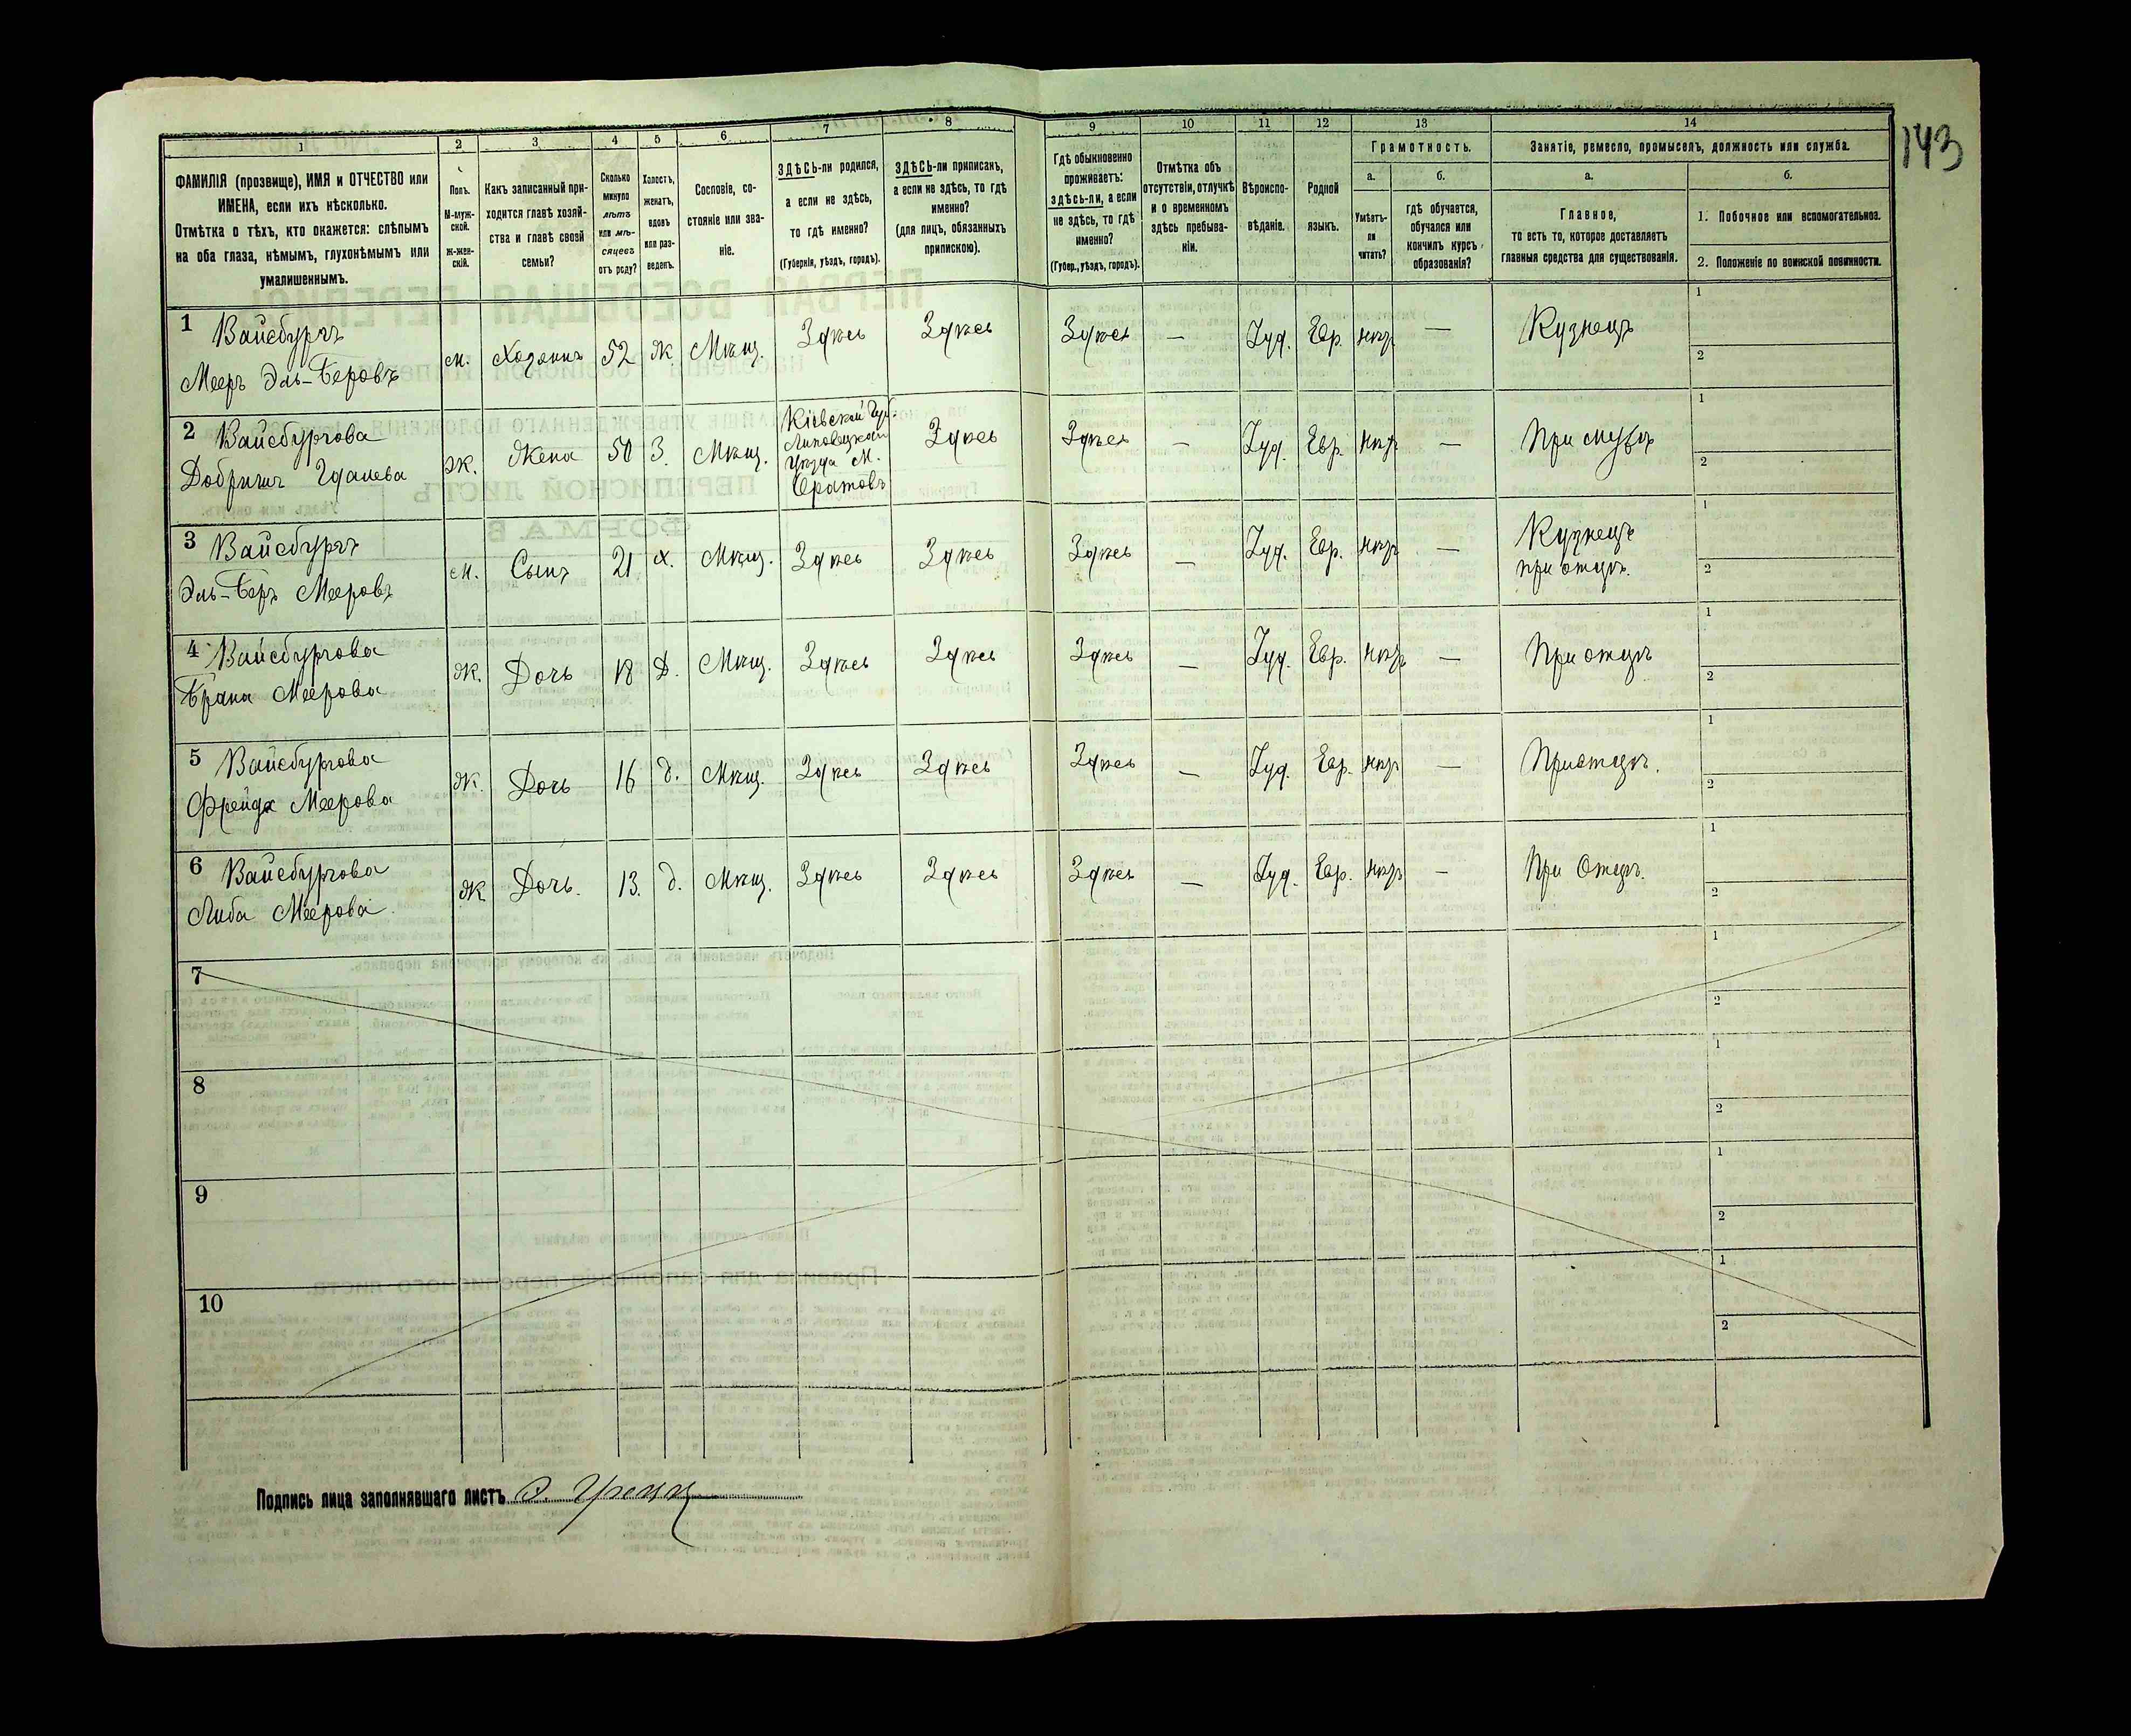 143
1 2 3 4 5 6 7 8 9 10 11 12 13 14
ФАМИЛІЯ (прозвище), ИМЯ и ОТЧЕСТВО или
ИМЕНА, если ихъ нѣсколько.
Отмѣтка о тѣхъ, кто окажется: слѣпымъ
на оба глаза, нѣмымъ, глухонѣмымъ или
умалишеннымъ.
Полъ.
М-муж-
ской.
Ж-жен-
скій.
Какъ записанный при-
ходится главѣ хозяй-
ства и главѣ своей
семьи?
Сколько
минуло
лѣтъ
или мѣ-
сяцевъ
отъ роду?
Холостъ,
женатъ,
вдовъ
или раз-
веденъ.
Сословіе, со-
стояніе или зва-
ніе.
ЗДѢСЬ-ли родился,
а если не здѣсь,
то гдѣ именно?
(Губернія, уѣздъ, городъ).
ЗДѢСЬ-ли приписанъ,
а если не здѣсь, то гдѣ
именно?
(для лицъ, обязанныхъ
припискою).
Гдѣ обыкновенно
проживаетъ:
здѣсь-ли, а если
не здѣсь, то гдѣ
именно?
(Губер., уѣздъ, городъ).
Отмѣтка объ
отсутствіи, отлучкѣ
и о временномъ
здѣсь пребыва-
ніи.
Вѣроиспо-
вѣданіе.
Родной
языкъ.
Грамотность.
а.
Умѣетъ-
ли
читать?
б.
гдѣ обучается,
обучался или
кончилъ курсъ
образованія?
Занятіе, ремесло, промыселъ, должность или служба.
а.
Главное,
то есть то, которое доставляетъ
главныя средства для существованія.
б.
1. Побочное или вспомогательное.
2. Положеніе по воинской повинности.
1 Вайсбургъ
Мееръ Эль-Беровъ
м. Хозяинъ 52 Ж Мѣщ. Здѣсь Здѣсь Здѣсь — Іуд. Евр. нѣтъ — Кузнецъ 1 2
2 Вайсбургова
ж. Жена 50 З. Мѣщ.
Кіевской Губ.
Липовецкой
Уѣзда М.
Здѣсь Здѣсь — Іуд. Евр. нѣтъ — При мужѣ 1 2
3 Вайсбургъ
Эль-Беръ Мееровъ
м. Сынъ 21 х. Мѣщ. Здѣсь Здѣсь Здѣсь — Іуд. Евр. нѣтъ — Кузнецъ
при отцѣ. 1 2
4 Вайсбургова
Меерова
Ж. Дочь 18 Д. Мѣщ. Здѣсь Здѣсь Здѣсь — Іуд. Евр. нѣтъ — При отцѣ 1 2
5 Вайсбургова
Фрейда Меерова
Ж. Дочь 16 д. Мѣщ. Здѣсь Здѣсь Здѣсь — Іуд. Евр. нѣтъ — При отцѣ. 1 2
6 Вайсбургова
Либа Меерова
Ж Дочь. 13. д. Мѣщ. Здѣсь Здѣсь Здѣсь — Іуд. Евр. нѣтъ — При Отцѣ. 1 2
7 1 2
8 1 2
9 1 2
10 1 2
Подпись лица заполнявшаго листъ